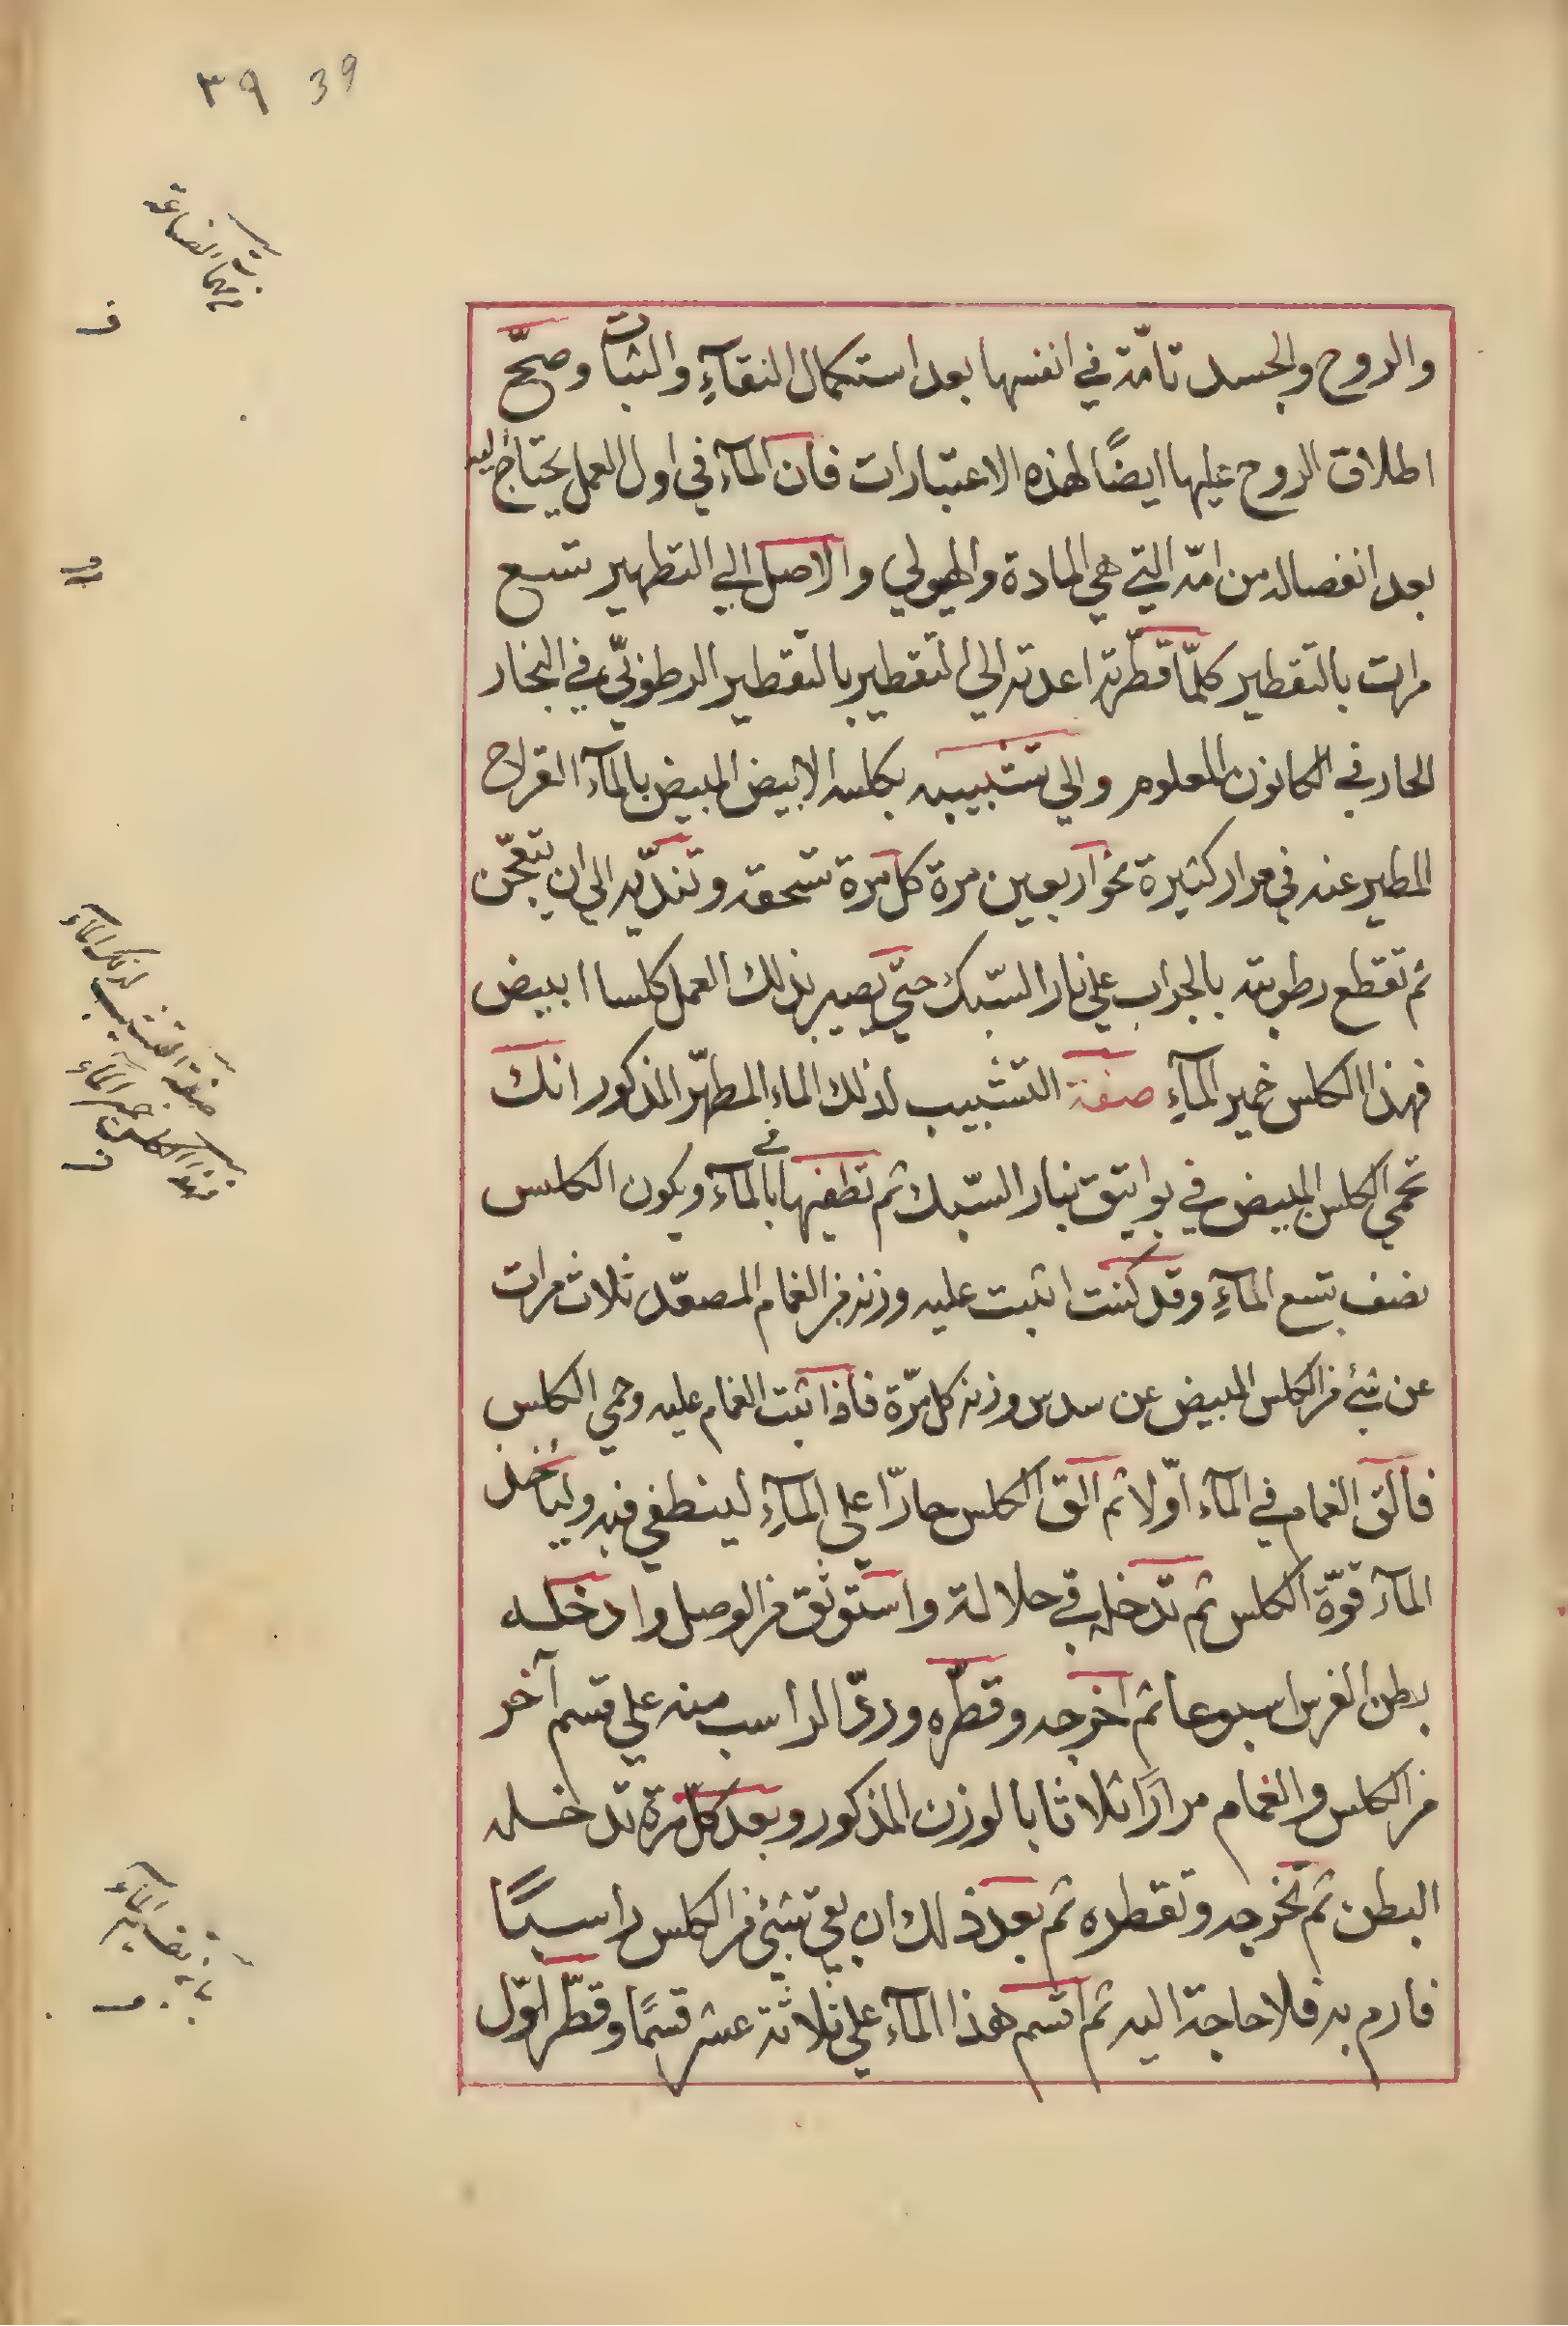 ٣٩ 39
والروح والجسد تامّة في انفسها بعد استكمال النقآءِ والثبات وصحّ
اطلاق الروح عليها ايضًا لهذه الاعتبارات فان المآء في اول العمل يحتاج
بعد انفصاله من امّه التي هي المادة والهيولي والاصل الي التطهير تسع
مرات بالتقطير كلمّا قطّرته اعدته الي التقطير بالتقطير الرطوبيّ في البخار
الحار في الكانون المعلوم والي تشبيبه بكلسه الابيض المبيض بالمآء القراح
المطير عنه في مرار كثيرة نحو اربعين مرة كل مرة تسحقه وتندّيه الي ان يتعجّن
ثم تقطع رطوبته بالجراب علي نار السّبك حتّي يصير بذلك العمل كلسا ابيض
فهذا الكلس خمير المآءِ صفة التشبيب لذلك الماء المطهّر المذكور انك
تحمي الكلس المبيض في بواتيق بنار السّبك ثم تطفيها بالمآء ويكون الكلس
نصف تسع المآءِ وقد كنت اثبت عليه وزنه من الغمام المصعّد ثلاث مرات
عن شئ من الكلس المبيض عن سدس وزنه كل مرّة فاذا ثبت الغمام عليه وحمي الكلس
فالق الغمام في المآء اوّلا ثم الق الكلس حارّا علي المآءِ لينطفي فيه وليأخذ
المآء قوّة الكلس ثم تدخله في حلالة واستوثق من الوصل وادخله
بطن الفرس اسبوعا ثم اخرجه وقطّره وردّ الراسب منه علي قسم آخر
من الكلس والغمام مرارًا ثلاثا بالوزن المذكور وبعد كلّ مرة تدخله
البطن ثم تخرجه وتقطره ثم بعد ذلك ان بقي شئ من الكلس راسبًا
فارم به فلا حاجة اليه ثم اقسم هذا المآء علي ثلاثة عشر قسمًا وقطّر اوّل